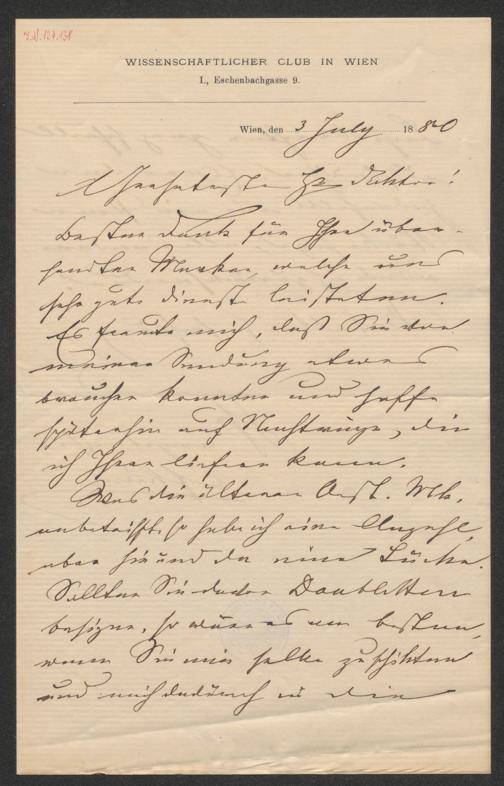 I.N. 127.138
WISSENSCHAFTLICHER CLUB IN WIEN
I., Eschenbachgasse 9.
Wien, den 3 July 1880
Geehrtester Hr Doktor!
Besten Dank für Ihre über-
sendten Marken, welche uns
sehr gute Dienste leisteten.
Es freute mich, daß Sie von
meiner Sendung etwas
brauchen konnten und hoffe
späterhin auf Nachträge, die
ich Ihnen liefern kann.
Was die älteren Oest. Mk.
anbetrifft, so habe ich eine Anzahl,
aber hie und da eine Lücke.
Sollten Sie davon Doubletten
besitzen, so wäre es am besten,
wenn Sie mir selbe zuschickten
und mich dadurch in die